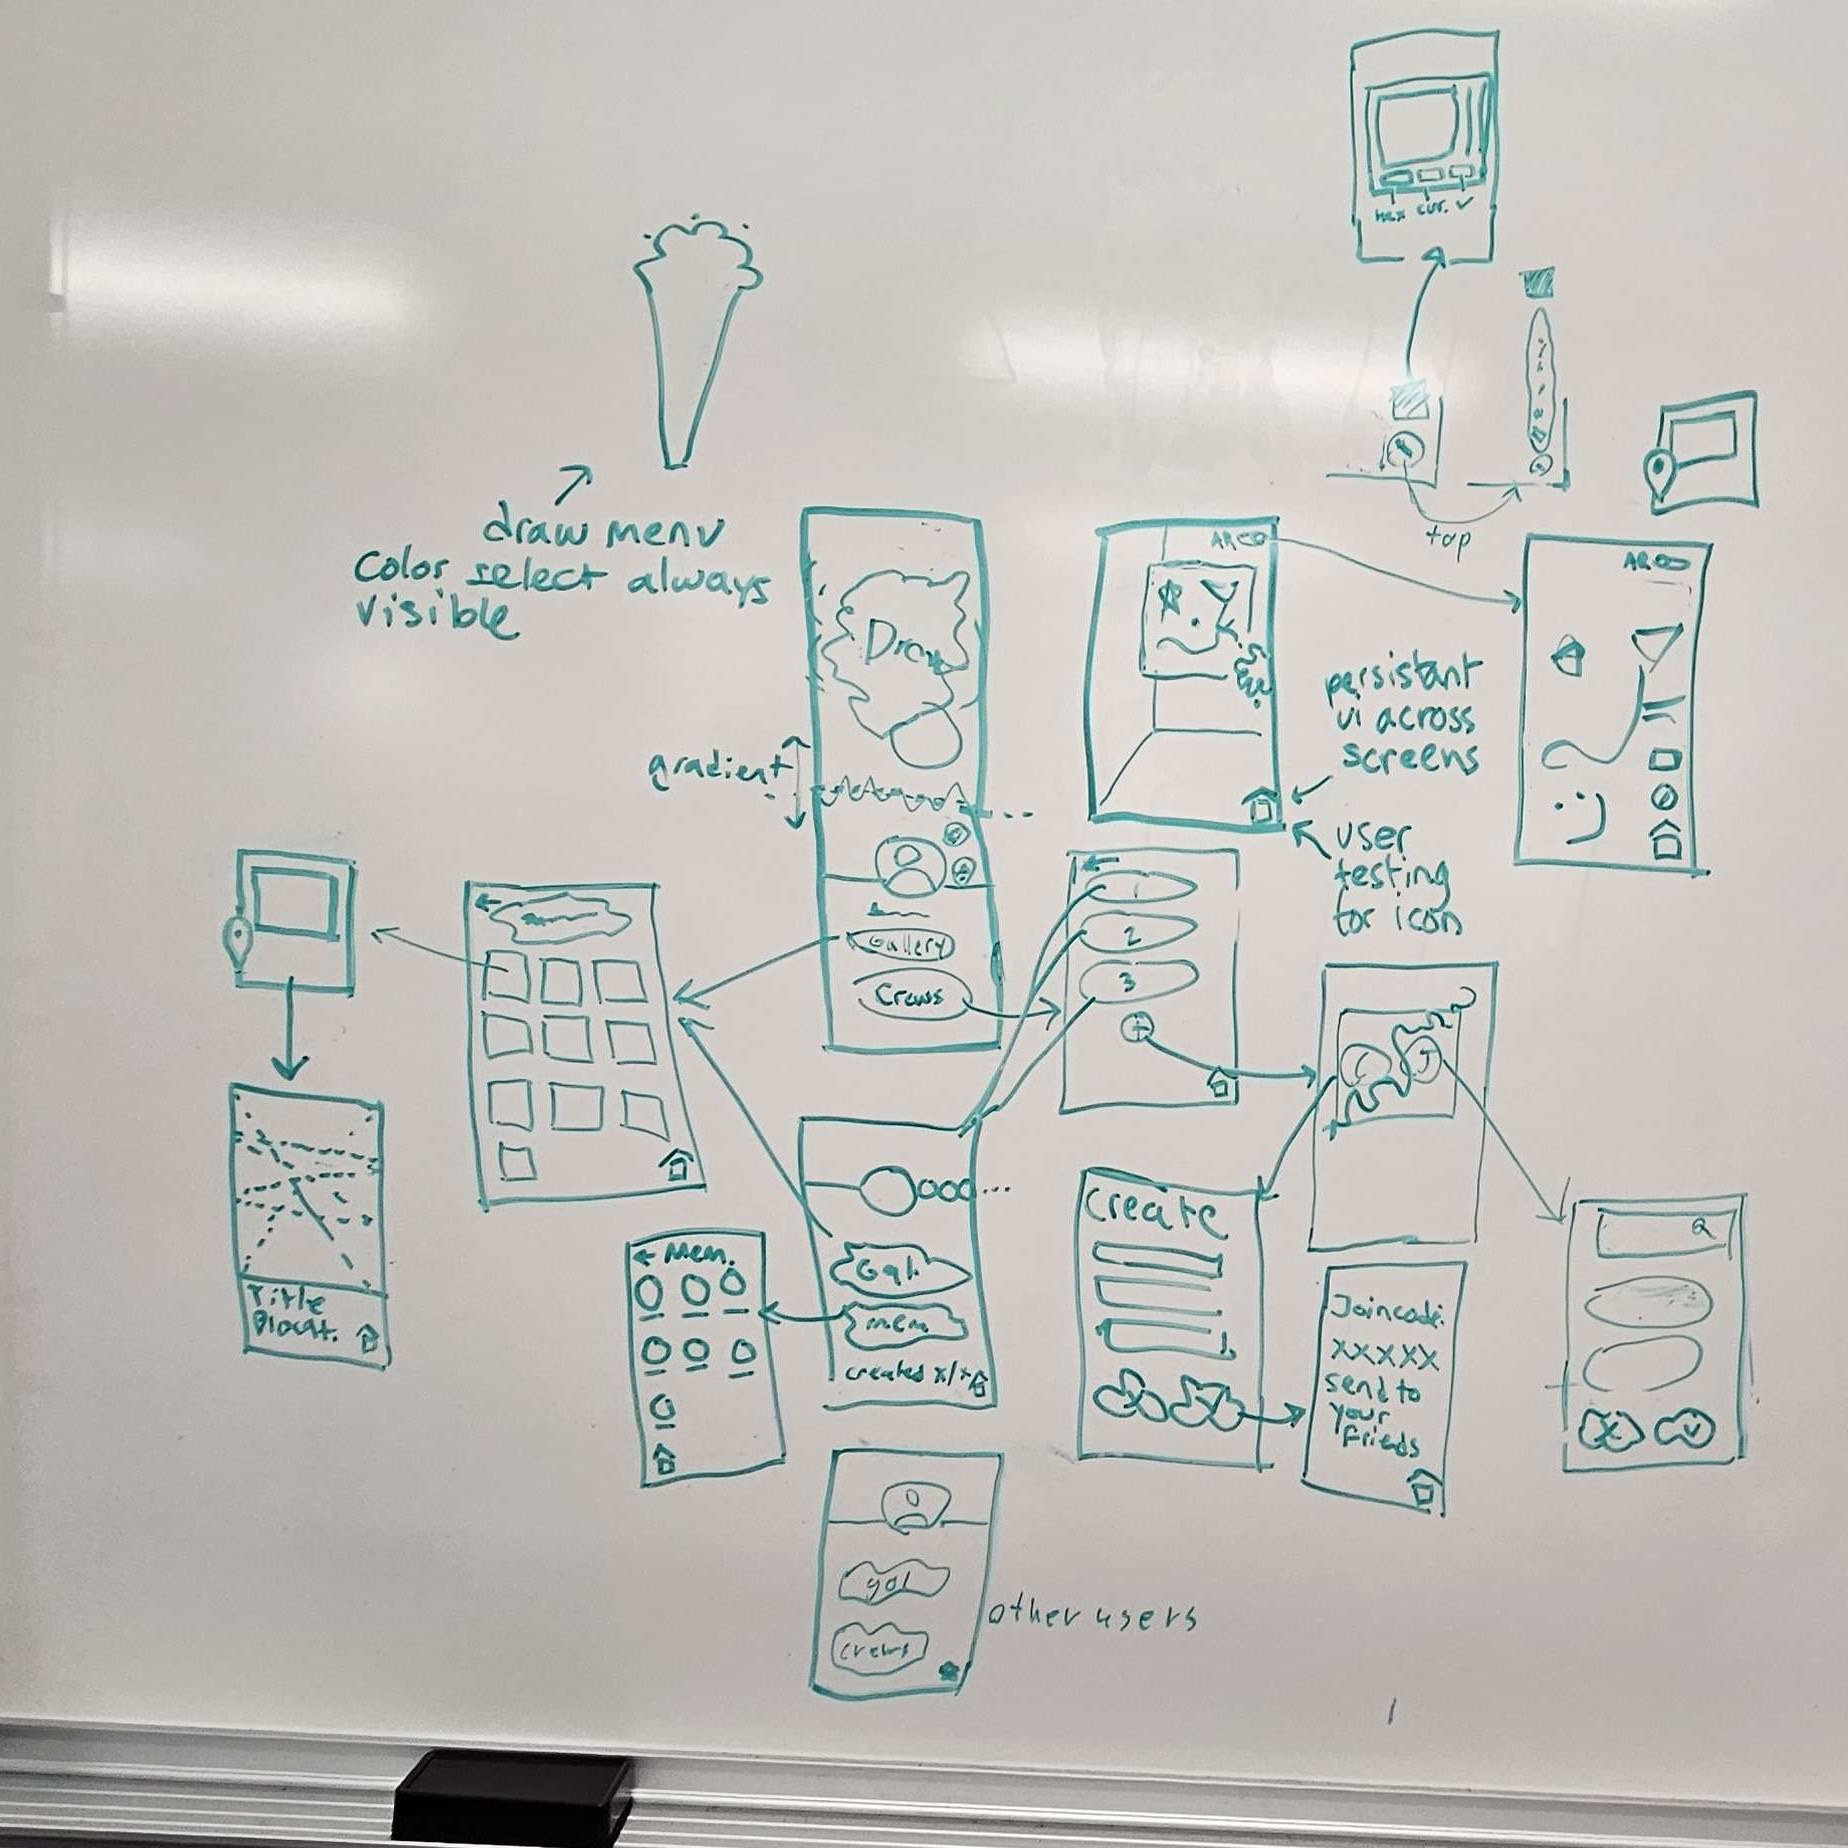 hex cur. ✓
tap
draw menu
color select always
visible
Draw
gradient
Gallery
Crews
AR
persistant
ui across
screens
user
testing
for icon
AR
1
2
3
Title
Mem.
Gal.
mem
created x/x
Create
Joincode:
XXXXX
send to
your
friends
gal
crews
other users